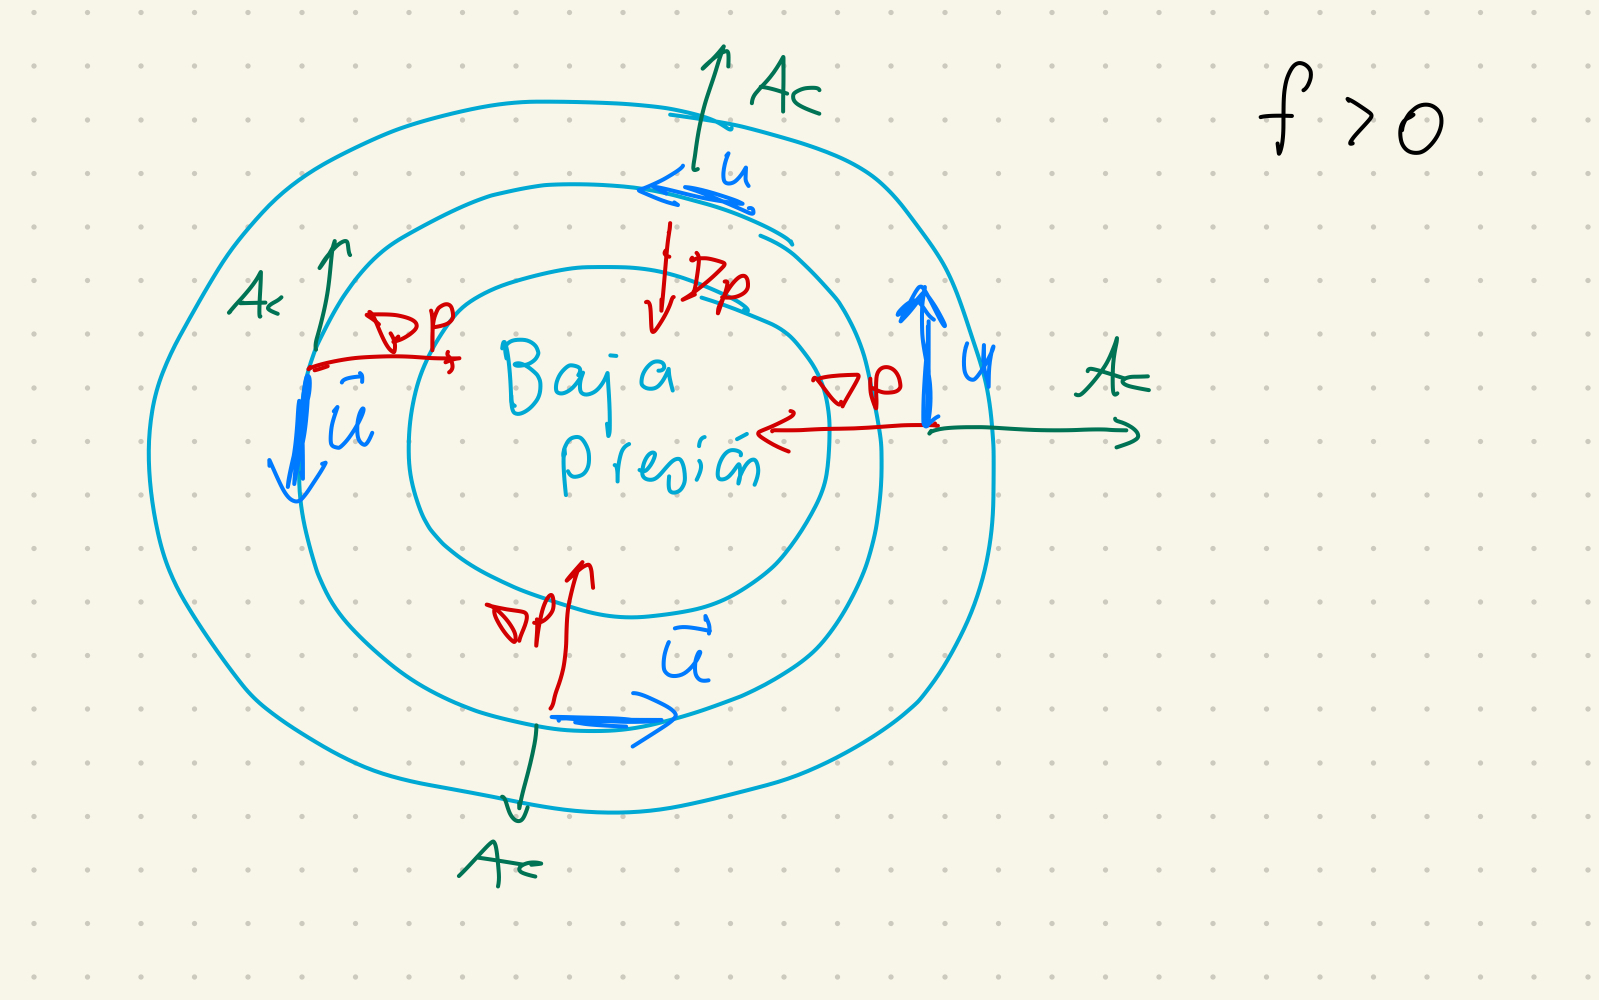 f > 0
Ac
u
Ac
∇p
∇p
Baja
presión
∇p
u
Ac
u⃗
∇p
u⃗
Ac